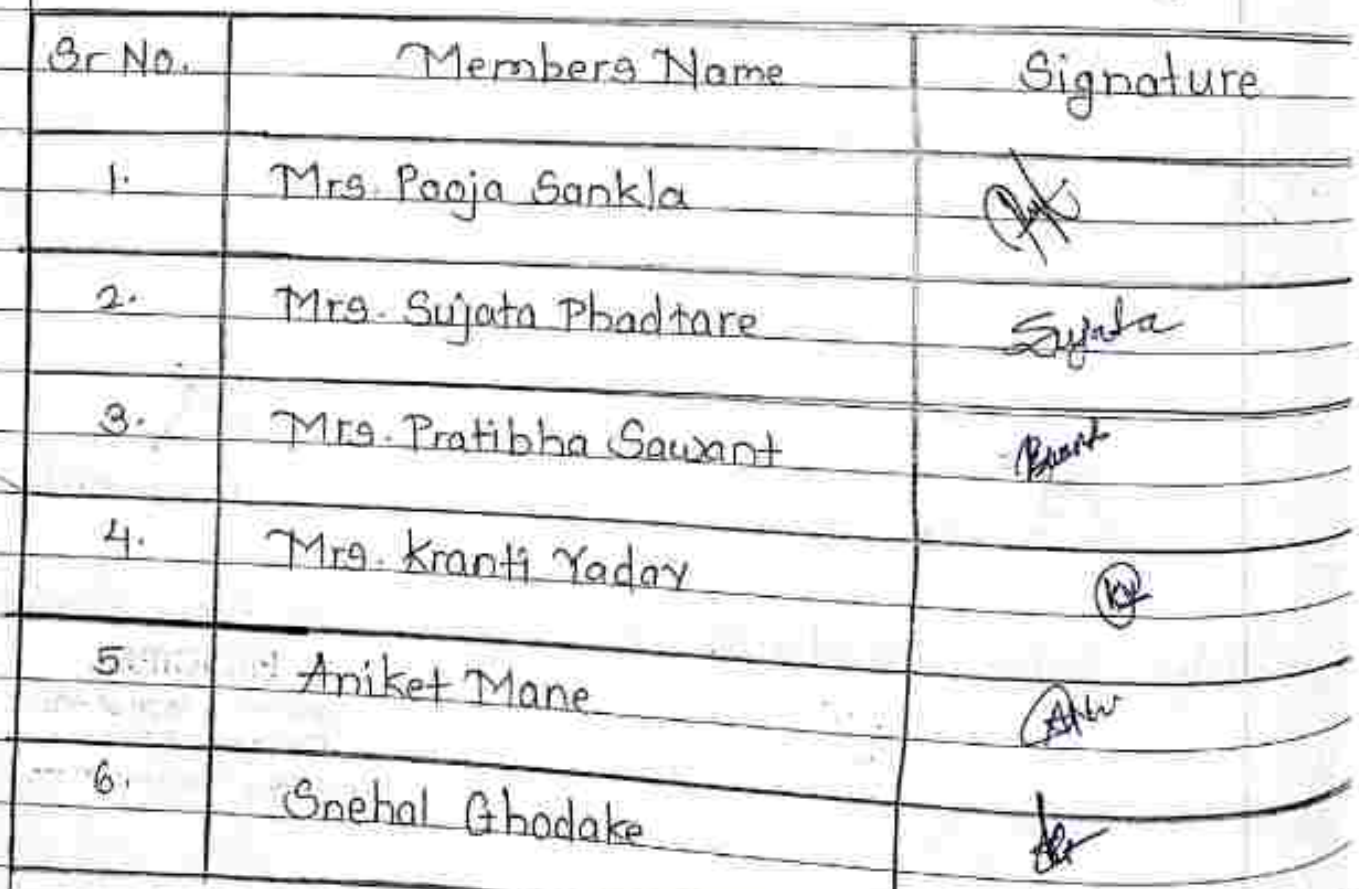 Sr No. Members Name Signature
1. Mrs. Pooja Sankla
2. Mrs. Sujata Phadtare Sujata
3. Mrs. Pratibha Sawant
4. Mrs. Kranti Yadav
5. Aniket Mane
6. Snehal Ghodake